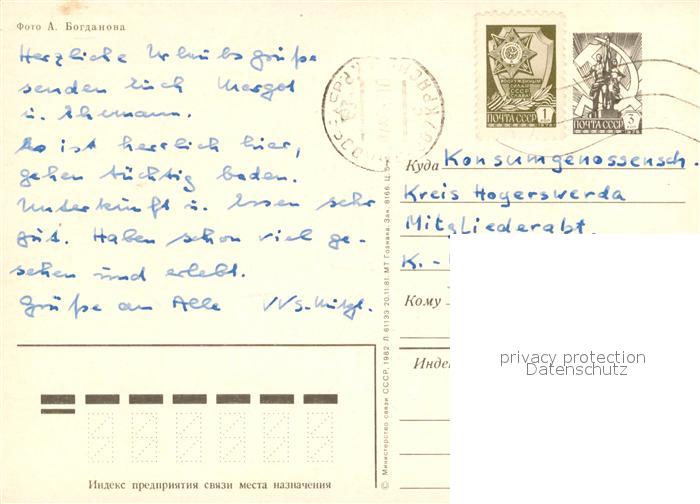 Фото А. Богданова
Herzliche Urlaubsgrüße
senden Euch Margot
u. Ehemann.
Es ist herrlich hier,
gehen tüchtig baden.
Unterkunft u. Essen sehr
gut. Haben schon viel ge-
sehen und erlebt.
Grüße an Alle VVS-Mitgl.
ПОЧТА СССР 1
1976
ПОЧТА СССР 3
1976
Куда Konsumgenossensch.
Kreis Hoyerswerda
Mitgliederabt.
K. -
Кому
Инде
privacy protection
Datenschutz
© Министерство связи СССР, 1982 Л. 61133 20.11.81. МТ Гознака. Зак. 8166. Ц. 5
Индекс предприятия связи места назначения